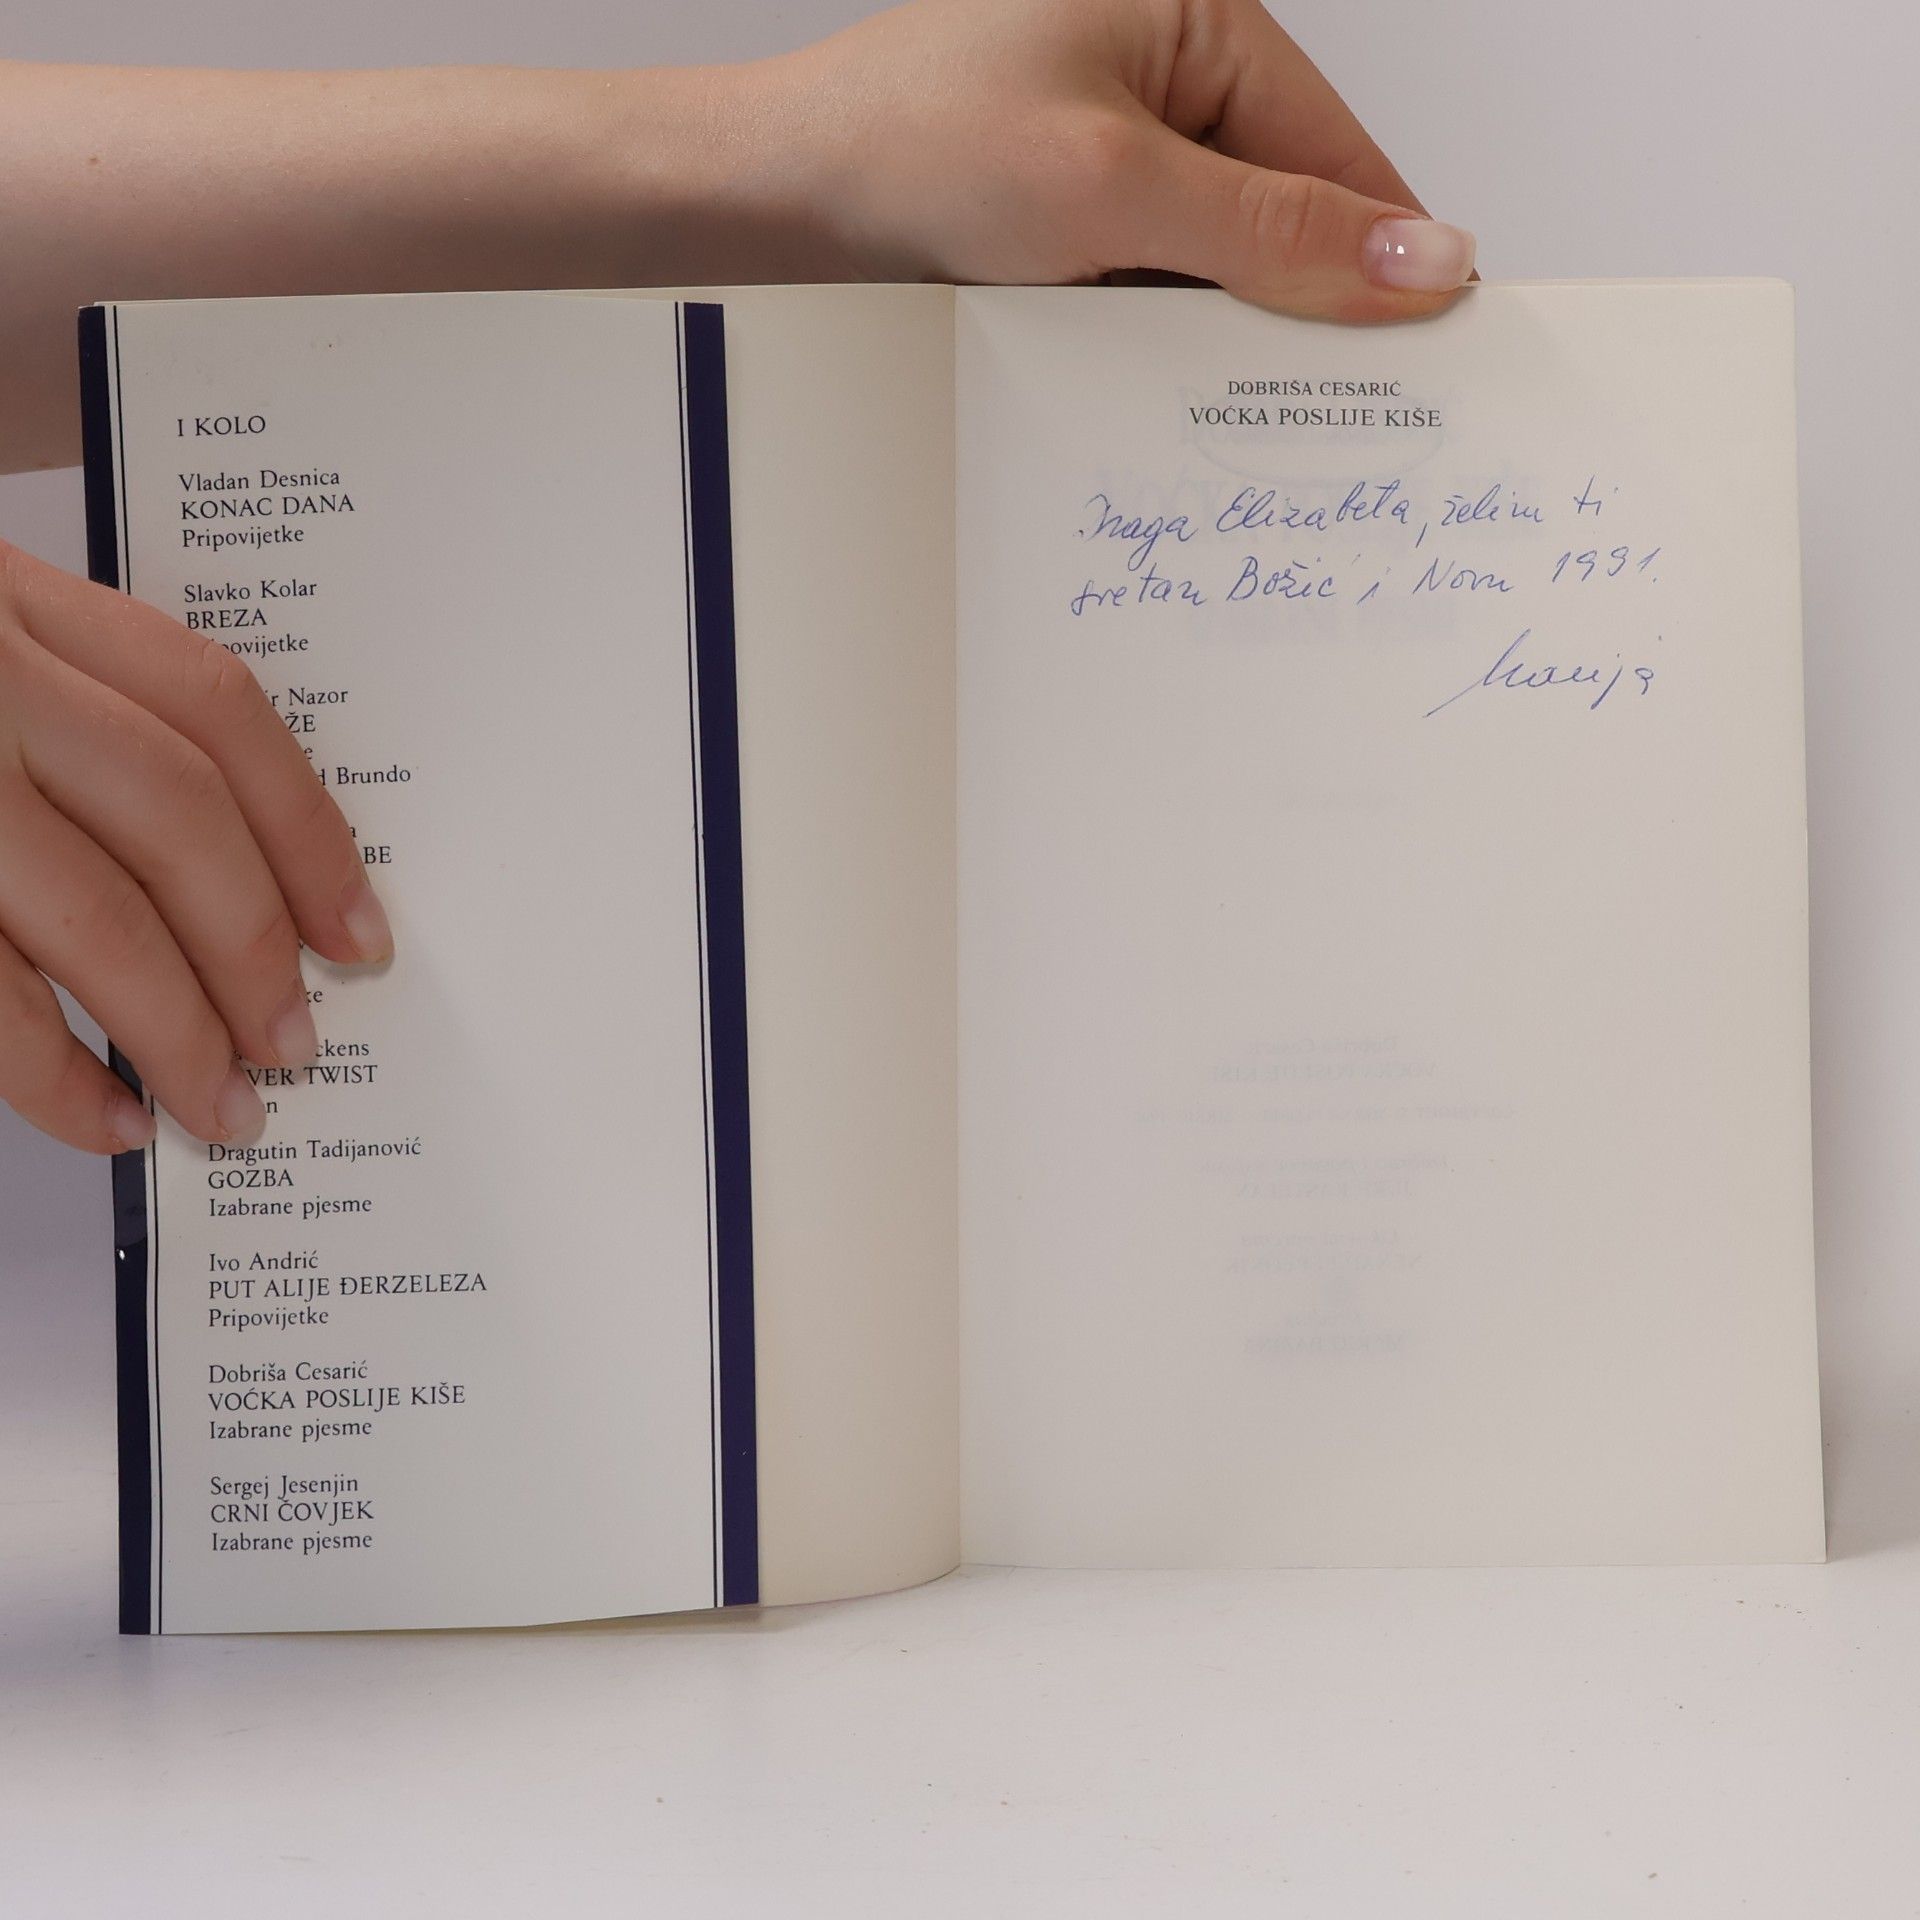 I KOLO
Vladan Desnica
KONAC DANA
Pripovijetke
Slavko Kolar
BREZA
povijetke
r Nazor
ŽE
e
d Brundo
a
BE
ke
ckens
VER TWIST
n
Dragutin Tadijanović
GOZBA
Izabrane pjesme
Ivo Andrić
PUT ALIJE ĐERZELEZA
Pripovijetke
Dobriša Cesarić
VOĆKA POSLIJE KIŠE
Izabrane pjesme
Sergej Jesenjin
CRNI ČOVJEK
Izabrane pjesme
DOBRIŠA CESARIĆ
VOĆKA POSLIJE KIŠE
Draga Elizabeta, želim ti
sretan Božić i Novu 1991.
Marija